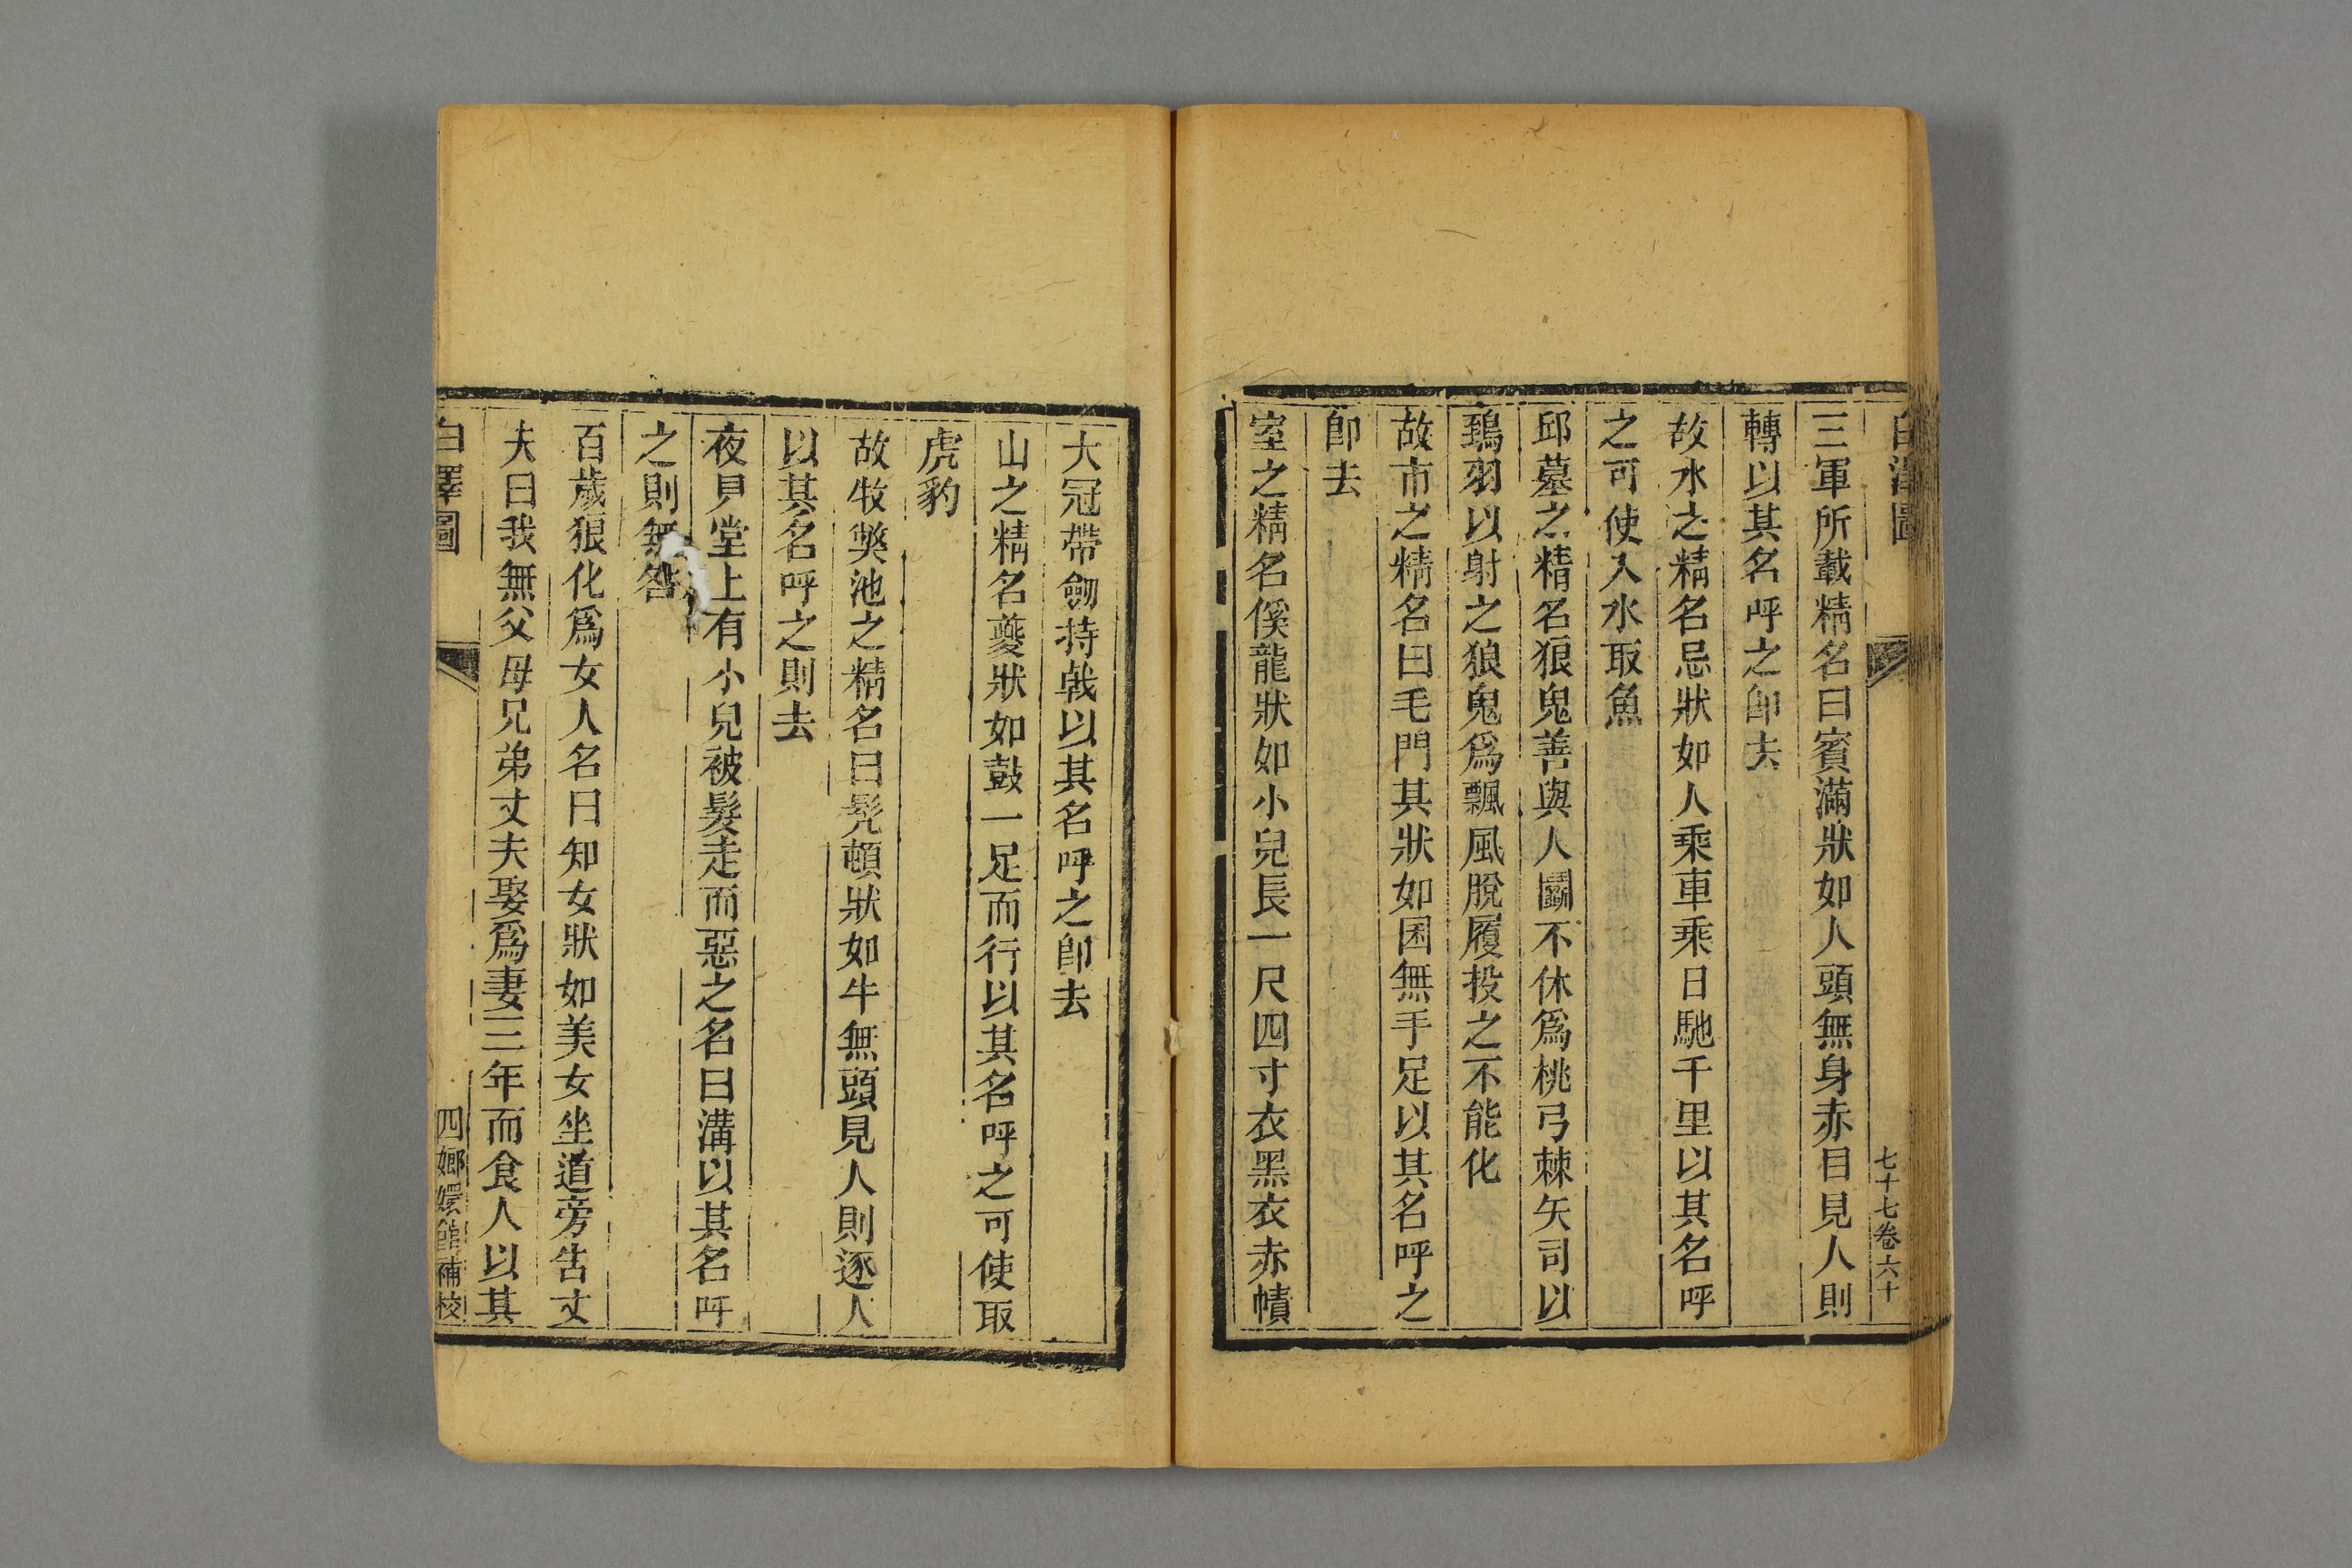 白澤圖
七十七卷六十
三軍所載精名曰賓滿狀如人頭無身赤目見人則
轉以其名呼之卽去
故水之精名忌狀如人乘車乘日馳千里以其名呼
之可使入水取魚
邱墓之精名狼鬼善與人鬭不休爲桃弓棘矢司以
鵄羽以射之狼鬼爲飄風脫履投之不能化
故市之精名曰毛門其狀如囷無手足以其名呼之
卽去
室之精名傒龍狀如小兒長一尺四寸衣黑衣赤幘
大冠帶劒持戟以其名呼之卽去
山之精名夔狀如鼓一足而行以其名呼之可使取
虎豹
故牧獘池之精名曰髠頓狀如牛無頭見人則逐人
以其名呼之則去
夜見堂上有小兒被髮走而惡之名曰溝以其名呼
之則無咎
百歲狼化爲女人名曰知女狀如美女坐道旁告丈
夫曰我無父母兄弟丈夫娶爲妻三年而食人以其
白澤圖
四嫏嬛館補校